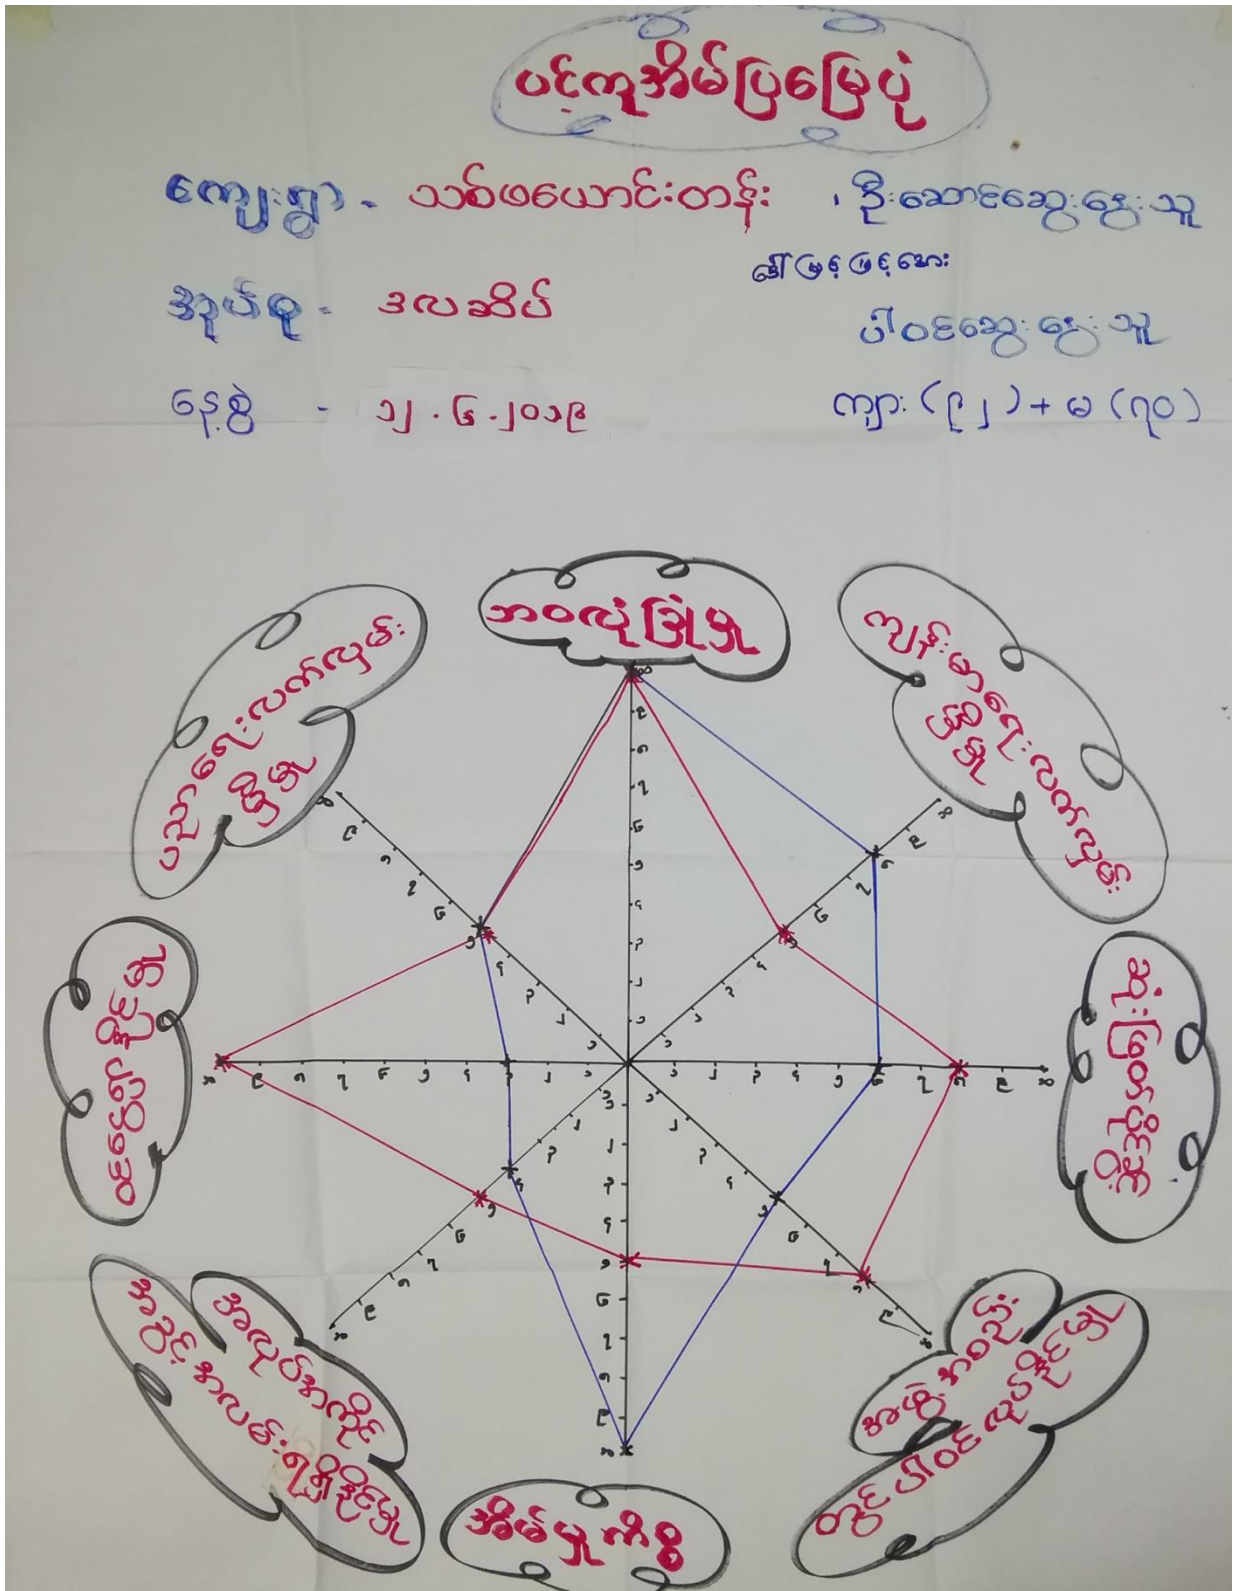 ပင့်ကူအိမ်ပြမြေပုံ
ကျေးရွာ - သစ်ဖယောင်းတန်း ၊ ဦးဆောင်ဆွေးနွေးသူ
ဒေါ်မြင့်မြင့်အေး
အုပ်စု - ဒလဆိပ်
ပါဝင်ဆွေးနွေးသူ
နေ့စွဲ - ၁၂.၆.၂၀၁၉
ကျား (၉၂) + မ (၇၀)
ဘဝလုံခြုံမှု
ကျန်းမာရေးလက်လှမ်း
မှီမှု
ဆုံးဖြတ်ပိုင်ခွင့်
အဖွဲ့အစည်း
တွင်ပါဝင်လုပ်နိုင်မှု
အိမ်မှုကိစ္စ
အလုပ်အကိုင်
အခွင့်အလမ်းရရှိနိုင်မှု
ဝင်ငွေရှာနိုင်မှု
ပညာရေးလက်လှမ်း
မှီမှု